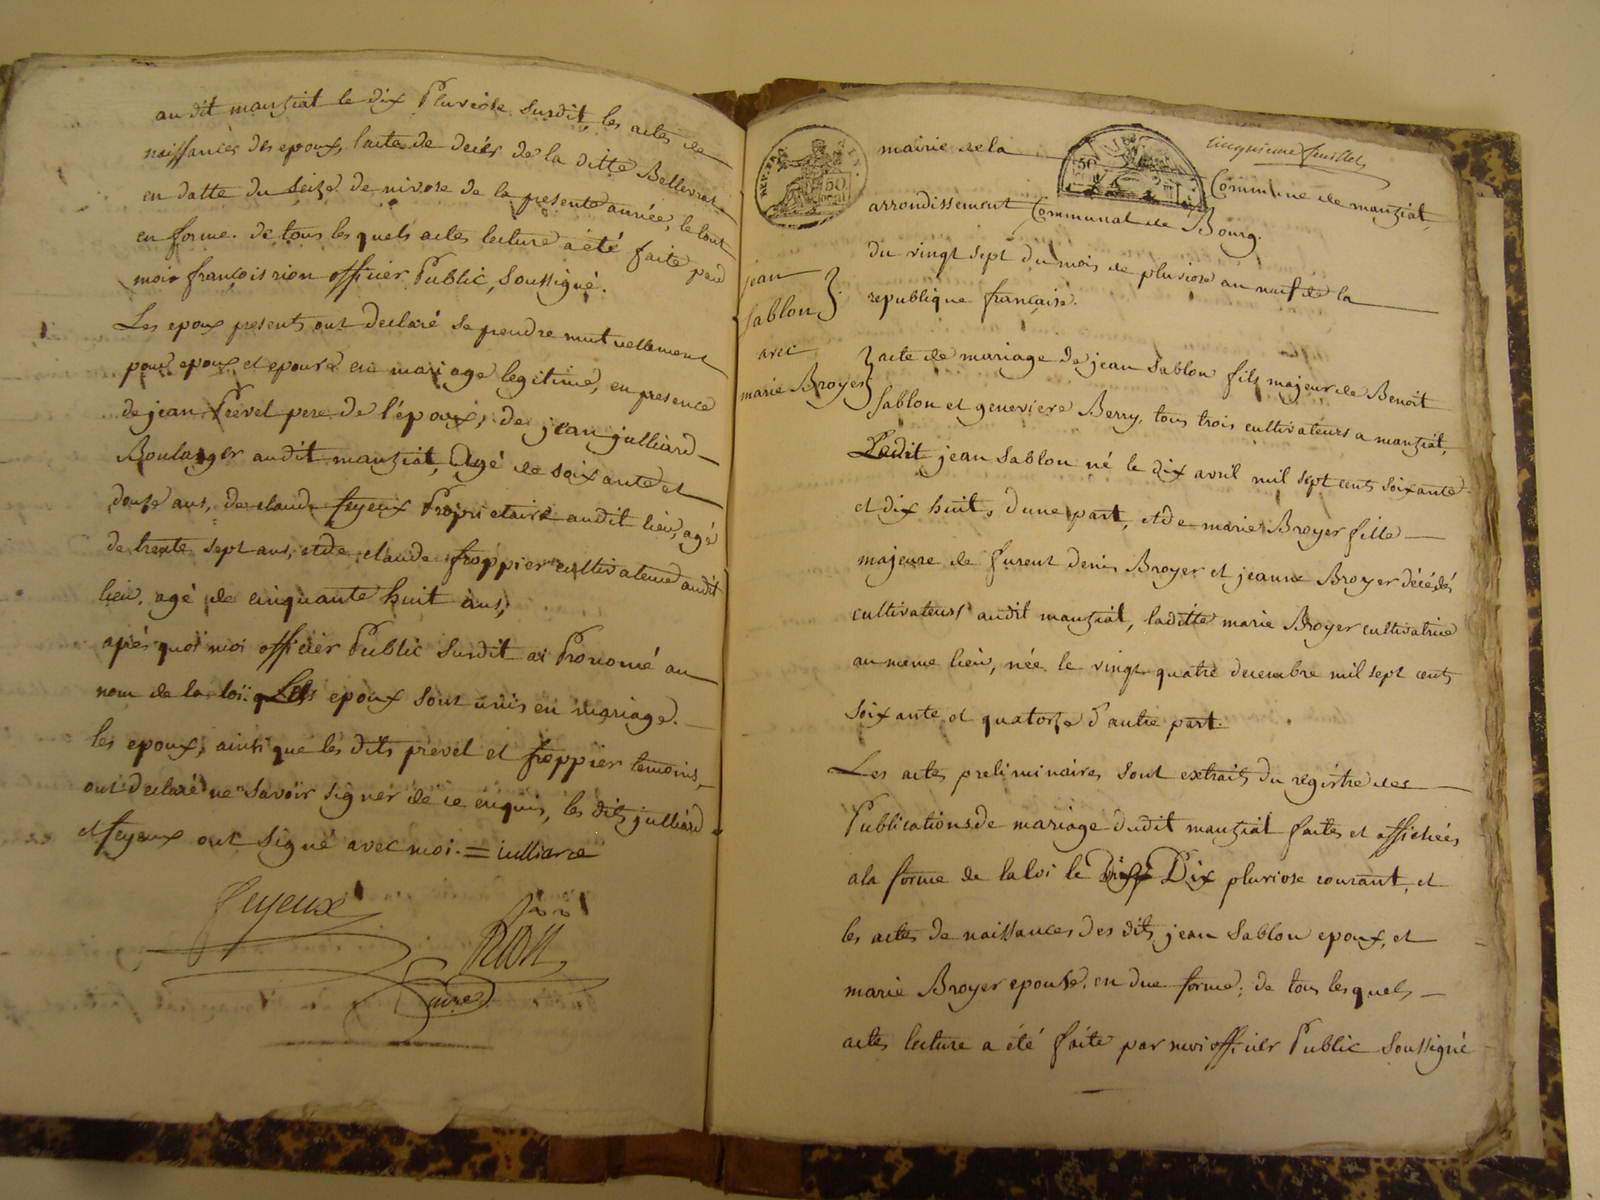 audit manziat le dix Pluviose Susdit, les actes de
naissances des epoux, l'acte de decès de la ditte Bellevrat
en datte du seize de nivose de la presente année, le tout
en forme. de tous lesquels actes lecture a été faite par
moi françois rion officier Public, Soussigné.
Les epoux presents ont declaré se prendre mutuellement
pour epoux et epouse en mariage legitime, en presence
de jean Prevel pere de l'epoux, de jean julliard
Boulanger audit manziat, Agé de soixante et
douze ans, de claude feyeux Proprietaire audit lieu, agé
de trente sept ans, et de claude froppier cultivateur audit
lieu, agé de cinquante huit ans,
après quoi moi officier Public Susdit ai Prononcé au
nom de la loi que Les epoux sont unis en mariage.
les epoux, ainsi que les dits prevel et froppier temoins,
ont declaré ne savoir signer de ce enquis, les dits julliard
et feyeux ont signé avec moi. = iulliard
feyeux
Rion
maire
REP. FRA.
50
cinquieme feuillet
mairie de la Commune de manziat,
arrondissement Communal de Bourg.
du vingt sept du mois de pluviose an neuf de la
republique française.
jean
sablon
avec
marie Broyer
acte de mariage de jean Sablon fils majeur de Benoit
Sablon et genevieve Berry, tous trois cultivateurs a manziat,
Ledit jean Sablon né le dix avril mil sept cents soixante
et dix huit, d'une part, et de marie Broyer fille
majeure de furent denis Broyer et jeanne Broyer décédés
cultivateurs audit manziat, laditte marie Broyer cultivatrice
au meme lieu, née le vingt quatre decembre mil sept cents
soixante et quatorze d'autre part.
Les actes preliminaires sont extraits du registre des
Publications de mariage dudit manziat faites et affichées
a la forme de la loi le Dix pluviose courant, et
les actes de naissances des dits, jean Sablon epoux, et
marie Broyer epouse, en due forme; de tous lesquels
actes lecture a été faite par moi officier Public Soussigné